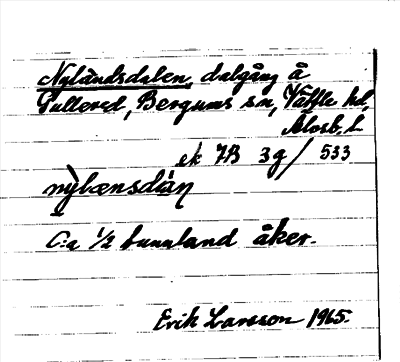 Nylandsdalen, dalgång å
Gullered, Bergums sn, Vättle hd,
Älvsb. l.
ek 7B 3g/533
C:a 1/2 tunnland åker.
Erik Larsson 1965.